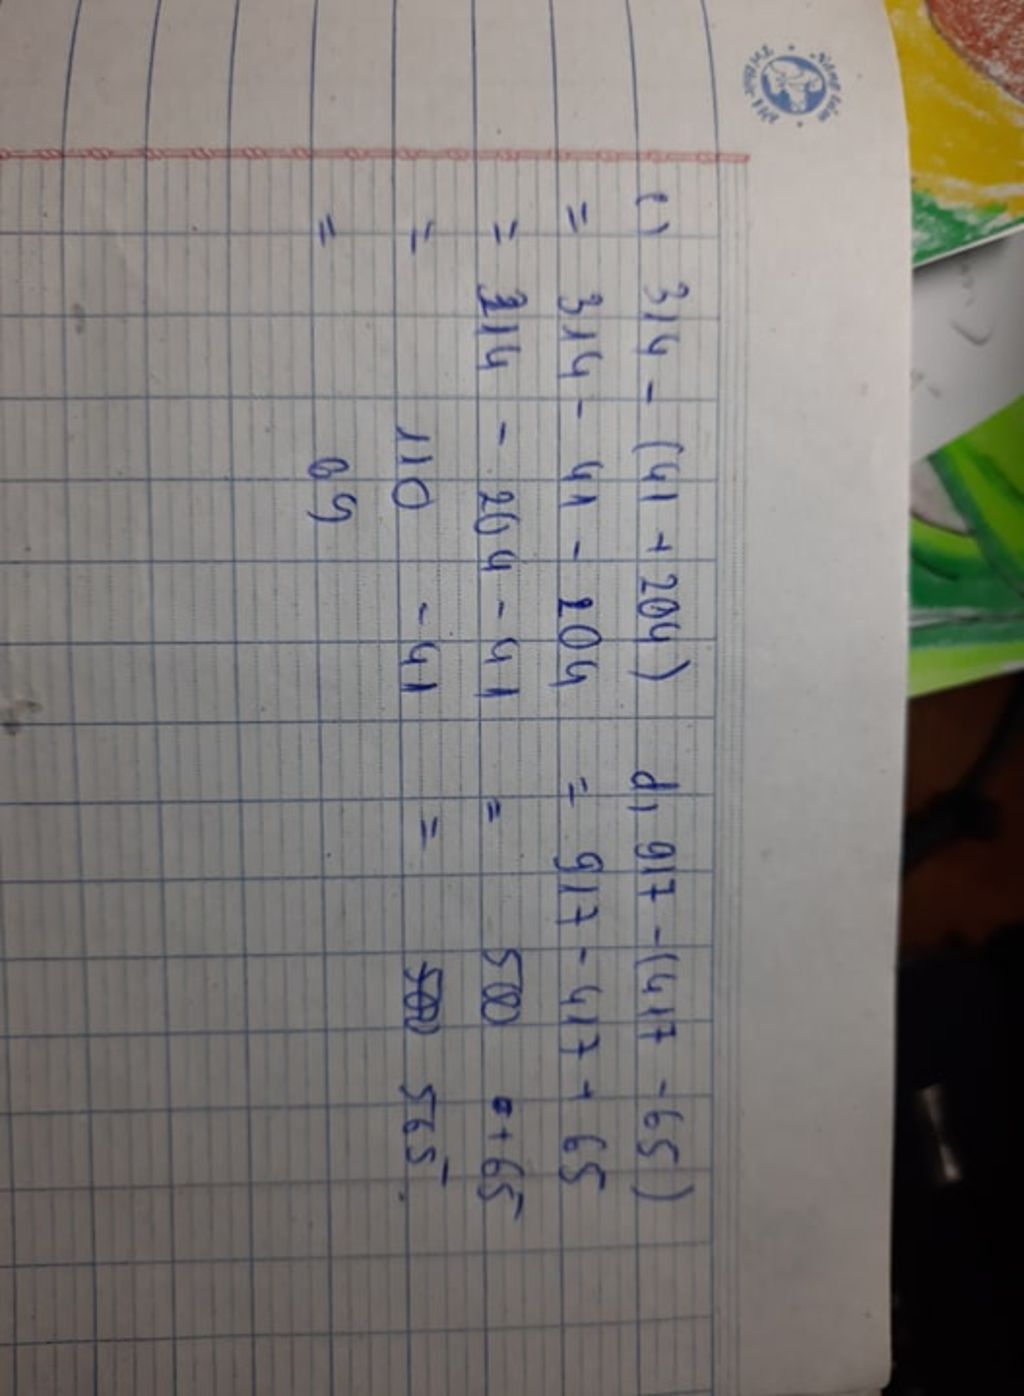 c, 314 - (41 + 204)
= 314 - 41 - 204
= 314 - 204 - 41
= 110 - 41
= 69
d, 917 - (417 - 65)
= 917 - 417 + 65
= 500 + 65
= 565.